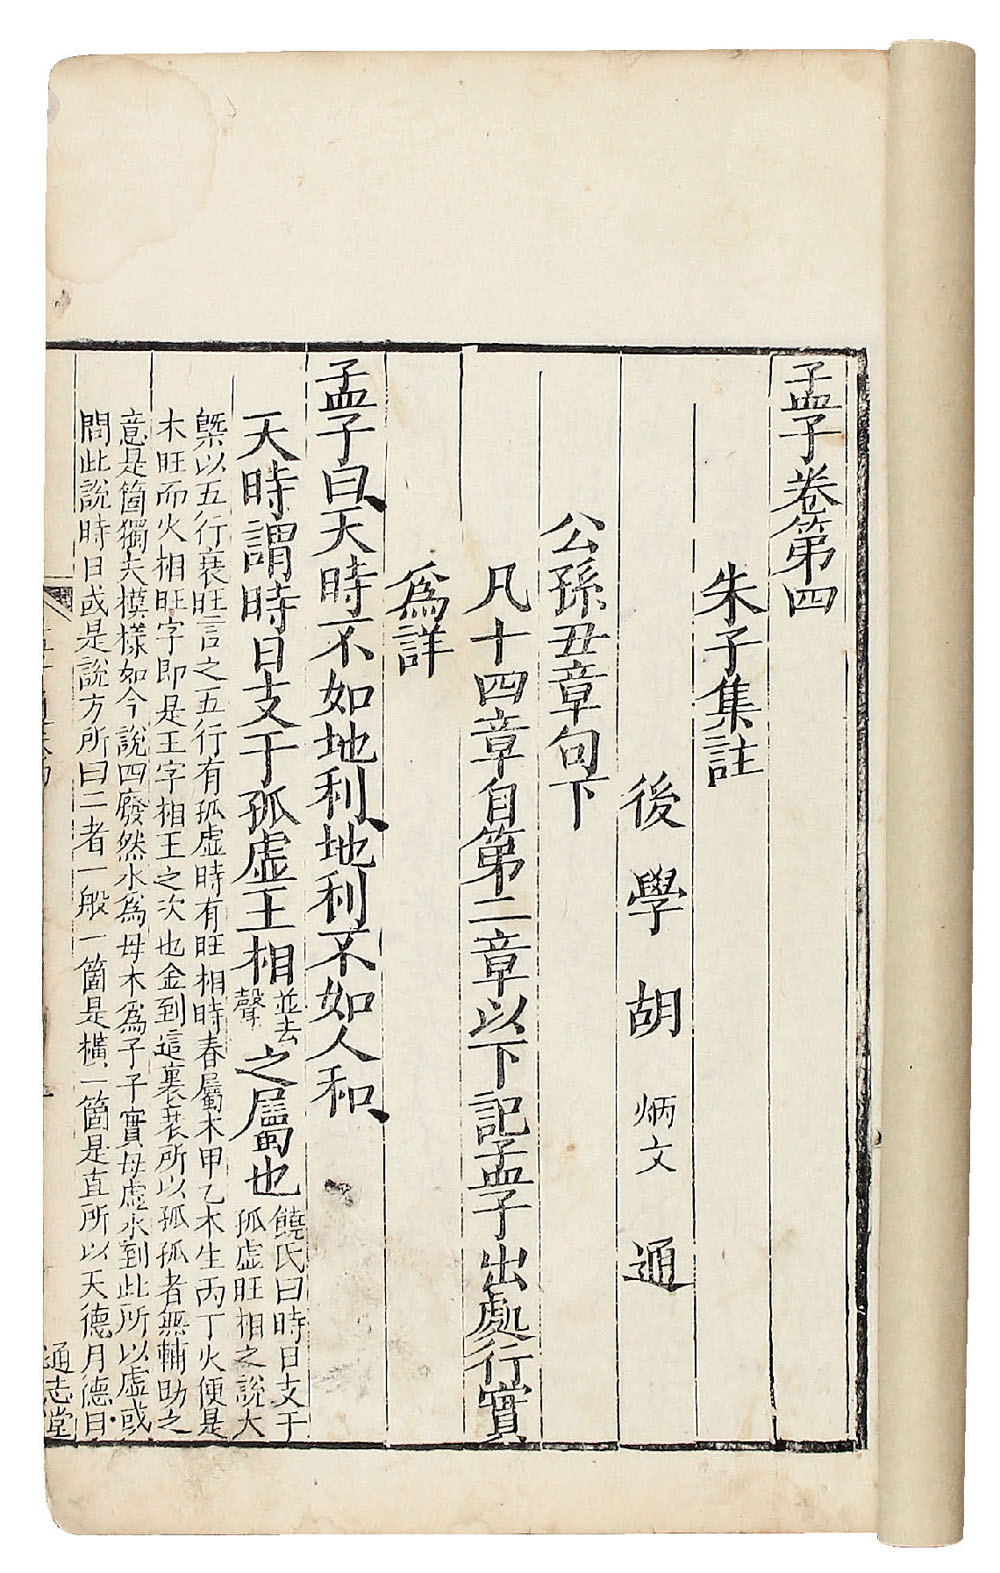 孟子卷第四
朱子集註
後學胡炳文通
公孫丑章句下
凡十四章自第二章以下記孟子出處行實
爲詳
孟子曰天時不如地利地利不如人和
天時謂時日支干孤虛王相並去聲之屬也饒氏曰時日支干
孤虛旺相之說大
槩以五行衰旺言之五行有孤虛時有旺相時春屬木甲乙木生丙丁火便是
木旺而火相旺字即是王字相王之次也金到這裏衰所以孤孤者無輔助之
意是箇獨夫模樣如今說四廢然水爲母木爲子子實母虛水到此所以虛或
問此說時日或是說方所曰二者一般一箇是橫一箇是直所以天德月德日
通志堂